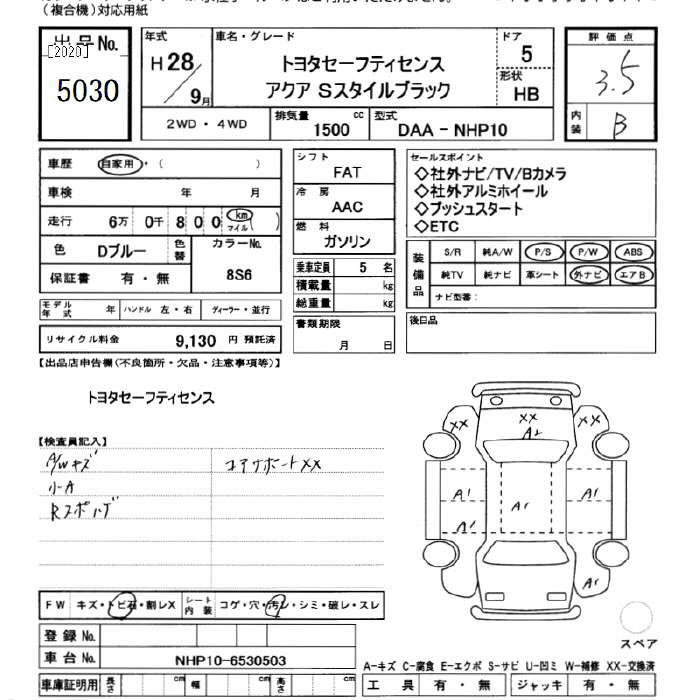 (複合機)対応用紙
出品No.
[2020]
5030
年式
H28/9月
車名・グレード
トヨタセーフティセンス
アクア Sスタイルブラック
ドア
5
形状
HB
評価点
3.5
内装
B
2WD・4WD
排気量
1500 cc
型式
DAA - NHP10
車歴 自家用・( )
車検 年 月
走行 6万 0千 8 0 0 km マイル( )
色 Dブルー 色替
カラーNo.
8S6
保証書 有・無
モデル年式 年 ハンドル 左・右 ディーラー・並行
リサイクル料金 9,130 円 預託済
シフト
FAT
冷房
AAC
燃料
ガソリン
乗車定員 5 名
積載量 kg
総重量 kg
書類期限
月 日
セールスポイント
◇社外ナビ/TV/Bカメラ
◇社外アルミホイール
◇プッシュスタート
◇ETC
装備品
S/R 純A/W P/S P/W ABS
純TV 純ナビ 革シート 外ナビ エアB
ナビ型番:
後日品
【出品店申告欄(不良箇所・欠品・注意事項等)】
トヨタセーフティセンス
【検査員記入】
A/Wキズ
コアサポートXX
小A
Rスポハゲ
XX
XX
XX
A2
A1
A1
A1
A1
A1
FW キズ・トビ石・割レX
シート内装 コゲ・穴・汚レ・シミ・破レ・スレ
登録No.
車台No. NHP10-6530503
車庫証明用 長さ cm 幅 cm 高さ cm
スペア
A-キズ C-腐食 E-エクボ S-サビ U-凹ミ W-補修 XX-交換済
工具 有・無 ジャッキ 有・無